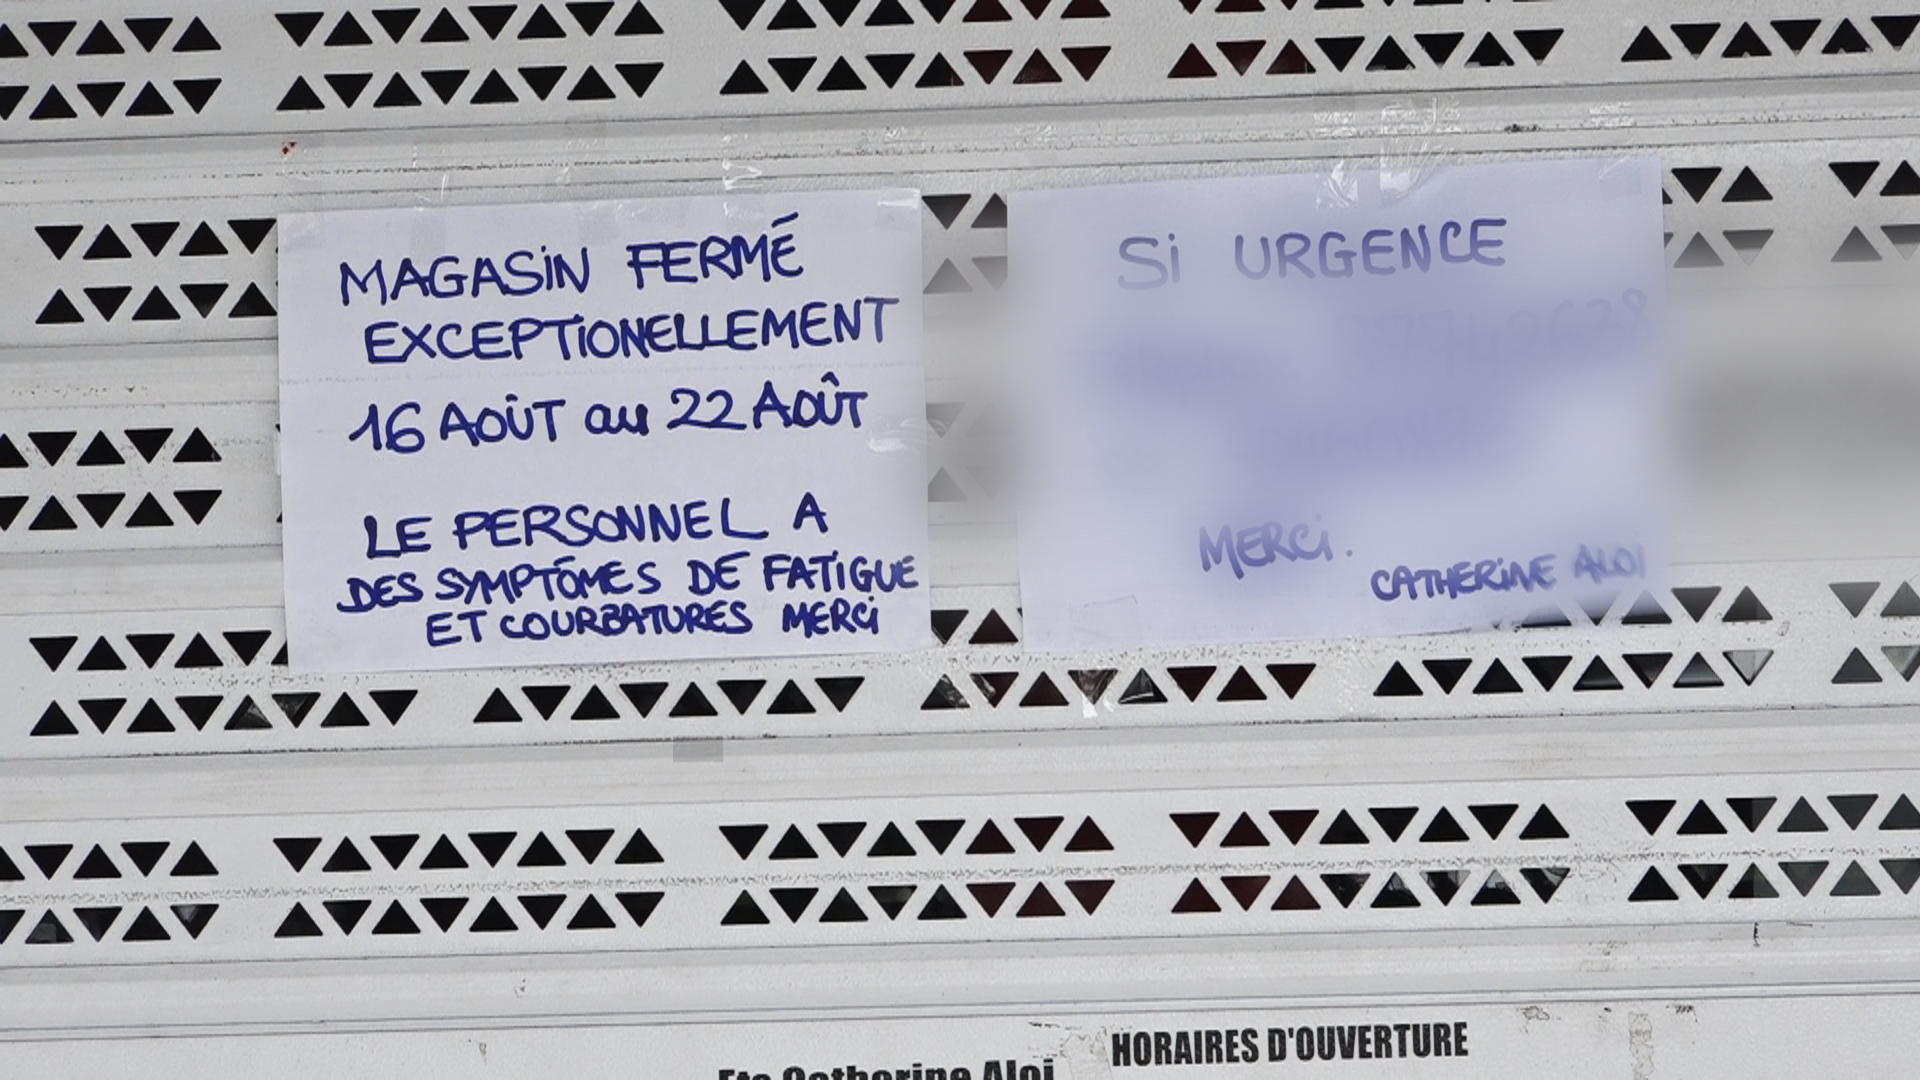 MAGASIN FERMÉ
EXCEPTIONELLEMENT
16 AOÛT au 22 AOÛT
LE PERSONNEL A
DES SYMPTÔMES DE FATIGUE
ET COURBATURES MERCI
Si URGENCE
MERCi.
CATHERINE ALOI
HORAIRES D'OUVERTURE
Ets Catherine Aloi